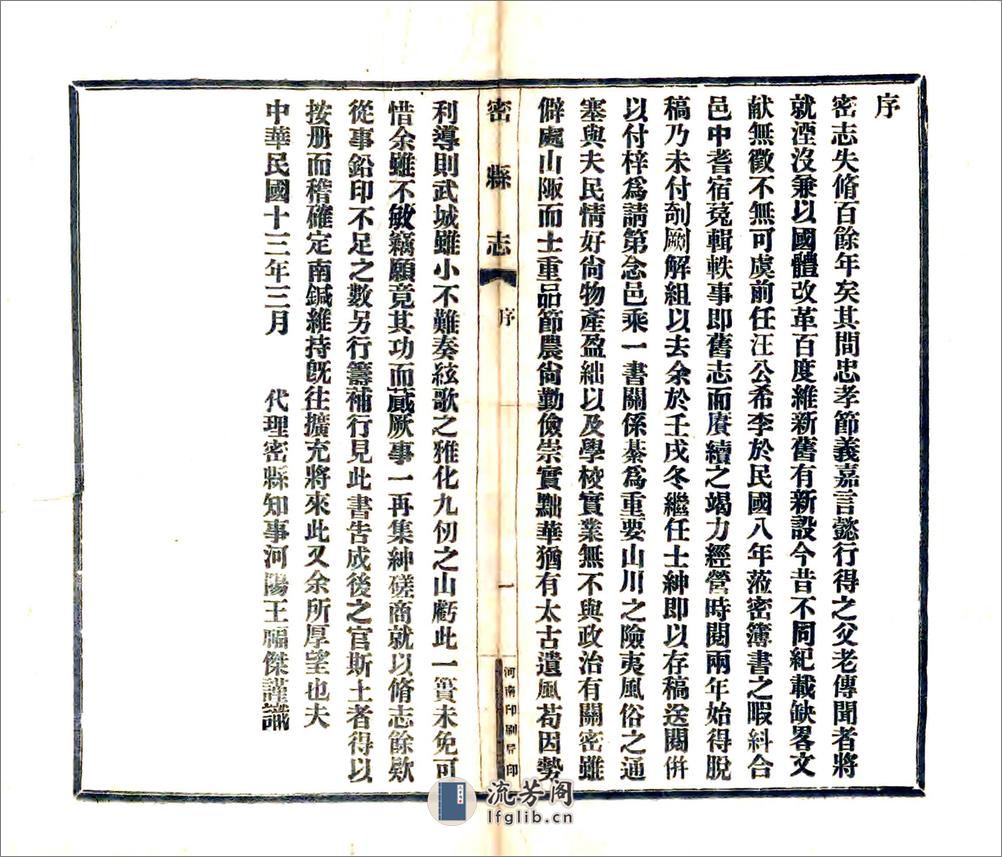 序
密志失脩百餘年矣其間忠孝節義嘉言懿行得之父老傳聞者將
就湮沒兼以國體改革百度維新舊有新設今昔不同紀載缺畧文
献無徵不無可虞前任汪公希李於民國八年蒞密簿書之暇糾合
邑中耆宿蒐輯軼事即舊志而賡續之竭力經營時閱兩年始得脫
稿乃未付剞劂解組以去余於壬戌冬繼任士紳即以存稿送閱併
以付梓爲請第念邑乘一書關係綦爲重要山川之險夷風俗之通
塞與夫民情好尙物產盈絀以及學校實業無不與政治有關密雖
僻處山陬而士重品節農尙勤儉崇實黜華猶有太古遺風苟因勢
密縣志
序
一
河南印刷局印
利導則武城雖小不難奏絃歌之雅化九仞之山虧此一簣未免可
惜余雖不敏竊願竟其功而蕆厥事一再集紳磋商就以脩志餘欵
從事鉛印不足之數另行籌補行見此書告成後之官斯土者得以
按册而稽確定南鍼維持旣往擴充將來此又余所厚望也夫
中華民國十三年三月 代理密縣知事河陽王福傑謹識
流芳阁
lfglib.cn